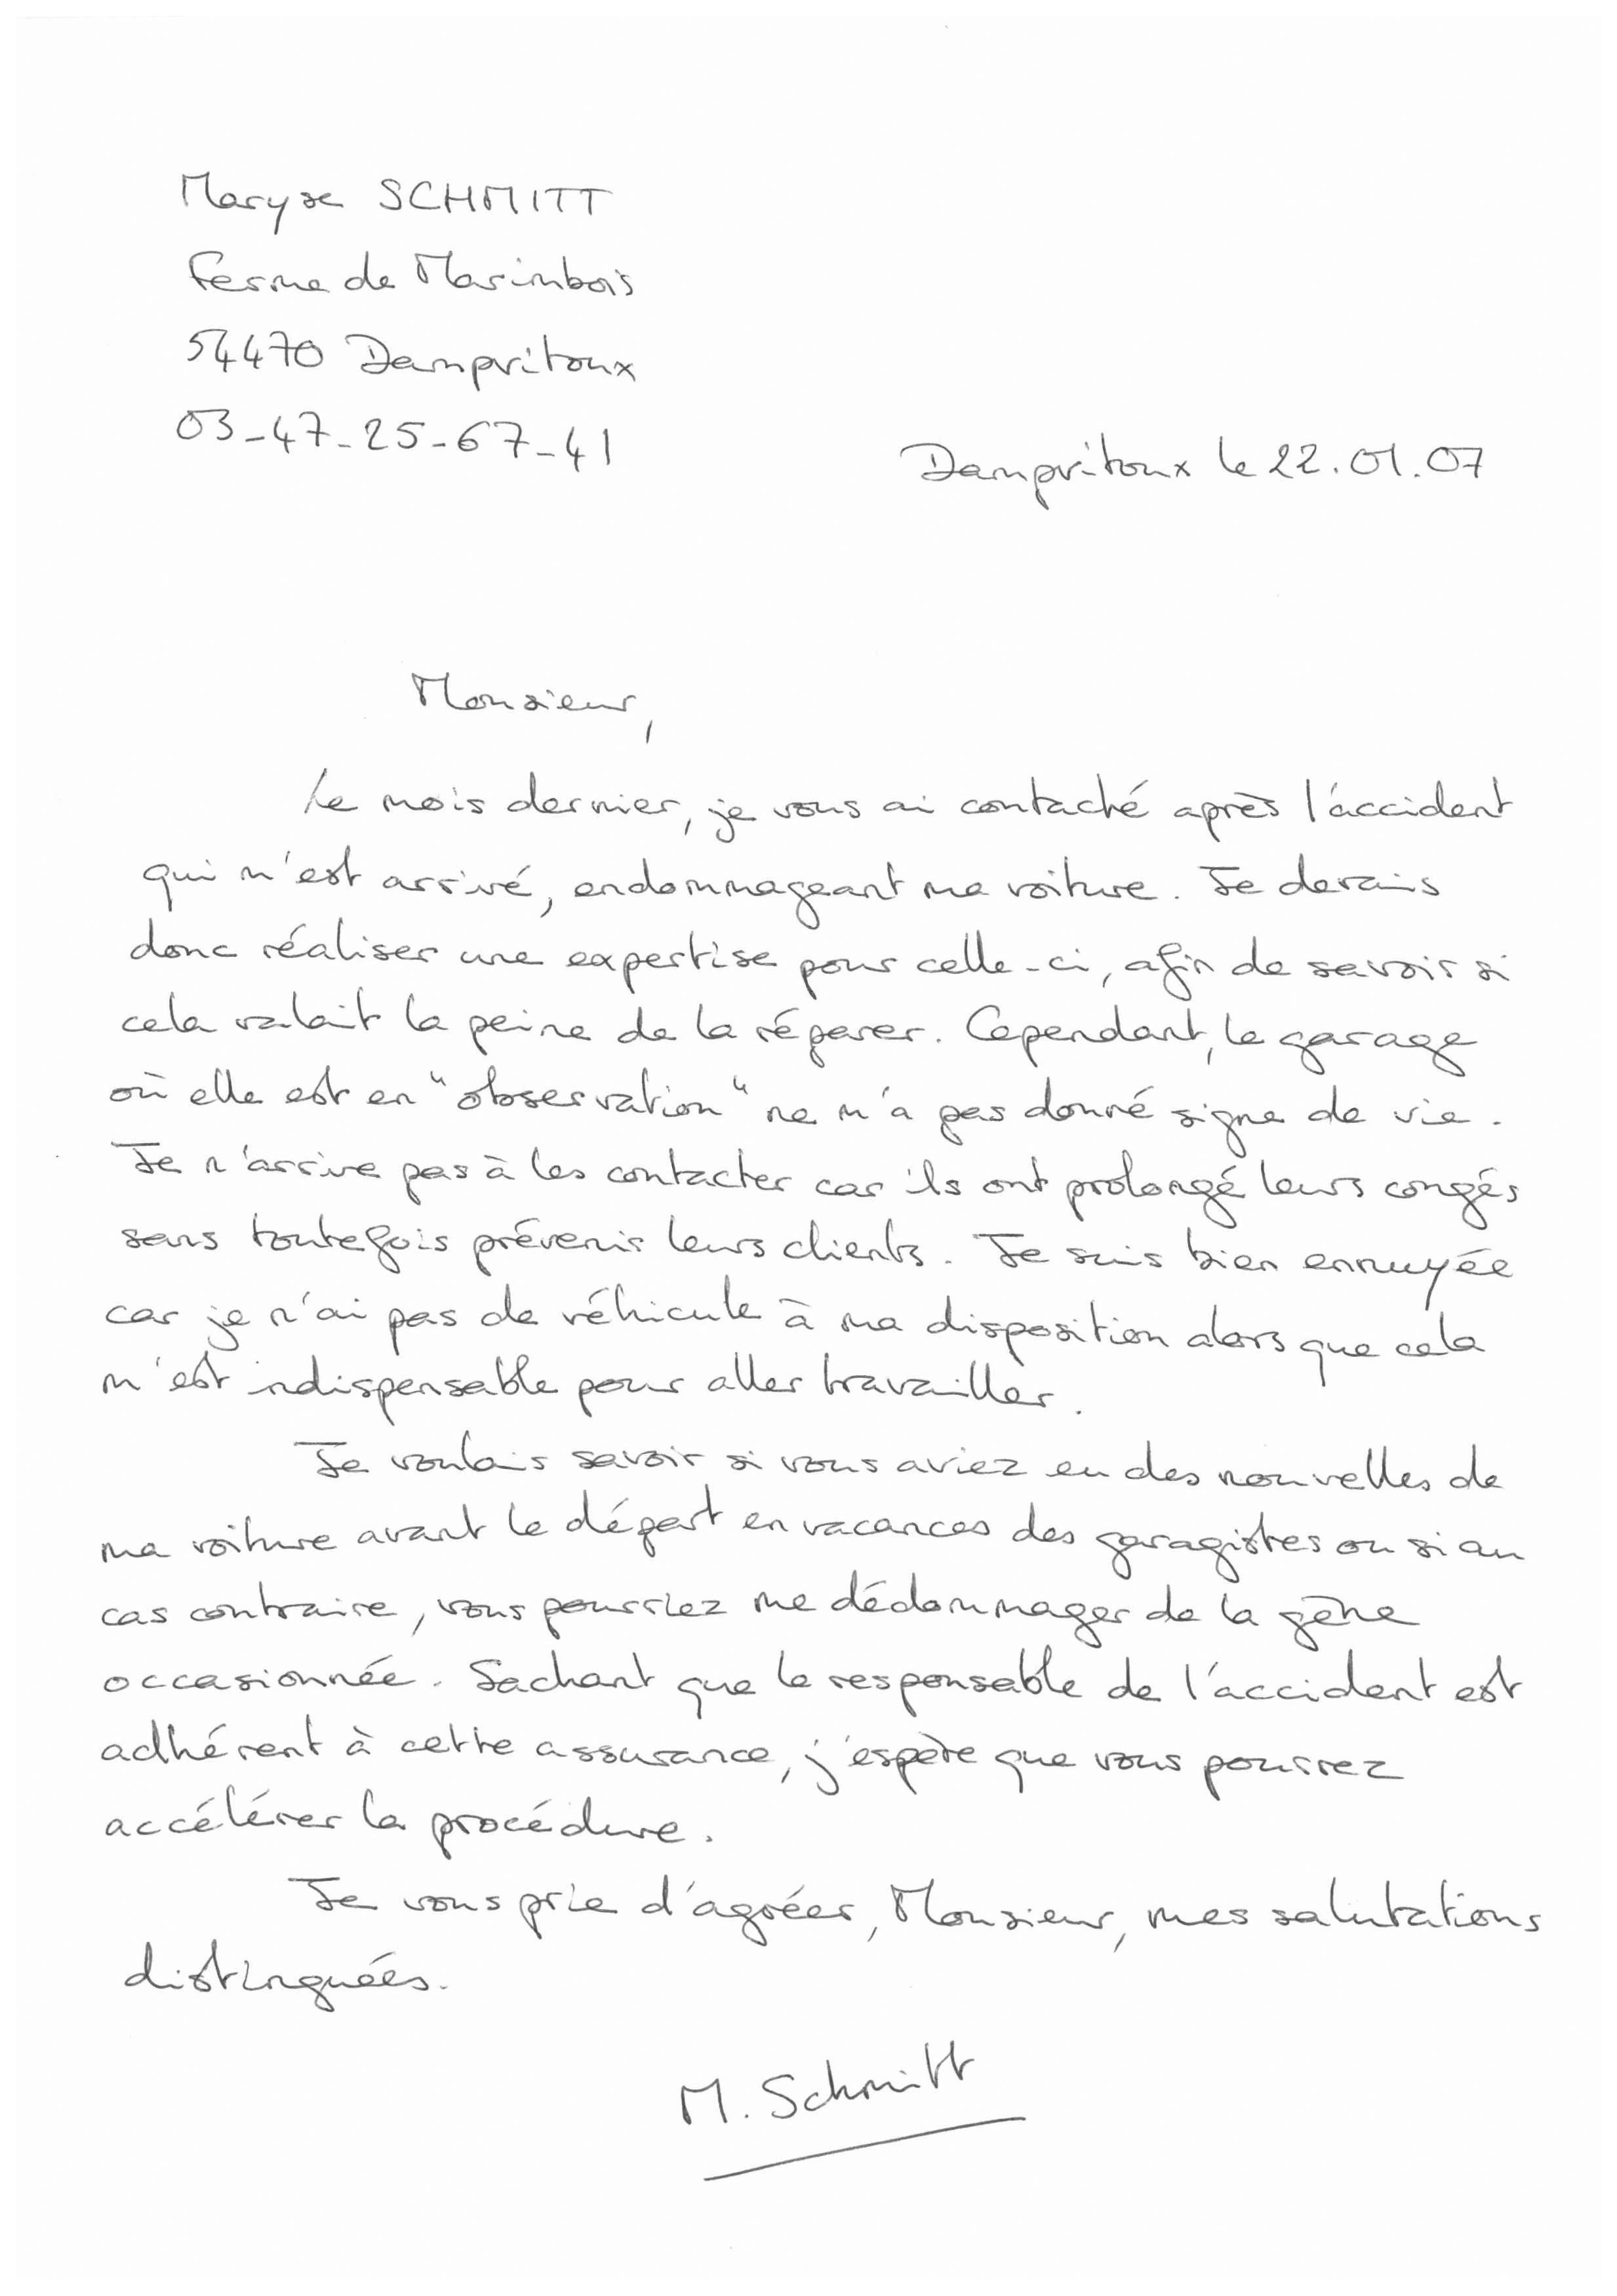 Maryse SCHMITT
Ferme de Marimbois
54470 Dampvitoux
03-47-25-67-41
Dampvitoux le 22.01.07
Monsieur,
Le mois dernier, je vous ai contacté après l'accident
qui m'est arrivé, endommageant ma voiture. Je devais
donc réaliser une expertise pour celle-ci, afin de savoir si
cela valait la peine de la réparer. Cependant, le garage
où elle est en "observation" ne m'a pas donné signe de vie.
Je n'arrive pas à les contacter car ils ont prolongé leurs congés
sans toutefois prévenir leurs clients. Je suis bien ennuyée
car je n'ai pas de véhicule à ma disposition alors que cela
m'est indispensable pour aller travailler.
Je voulais savoir si vous aviez eu des nouvelles de
ma voiture avant le départ en vacances des garagistes ou si au
cas contraire, vous pourriez me dédommager de la gêne
occasionnée. Sachant que le responsable de l'accident est
adhérent à cette assurance, j'espère que vous pourrez
accélérer la procédure.
Je vous prie d'agréer, Monsieur, mes salutations
distinguées.
M. Schmitt